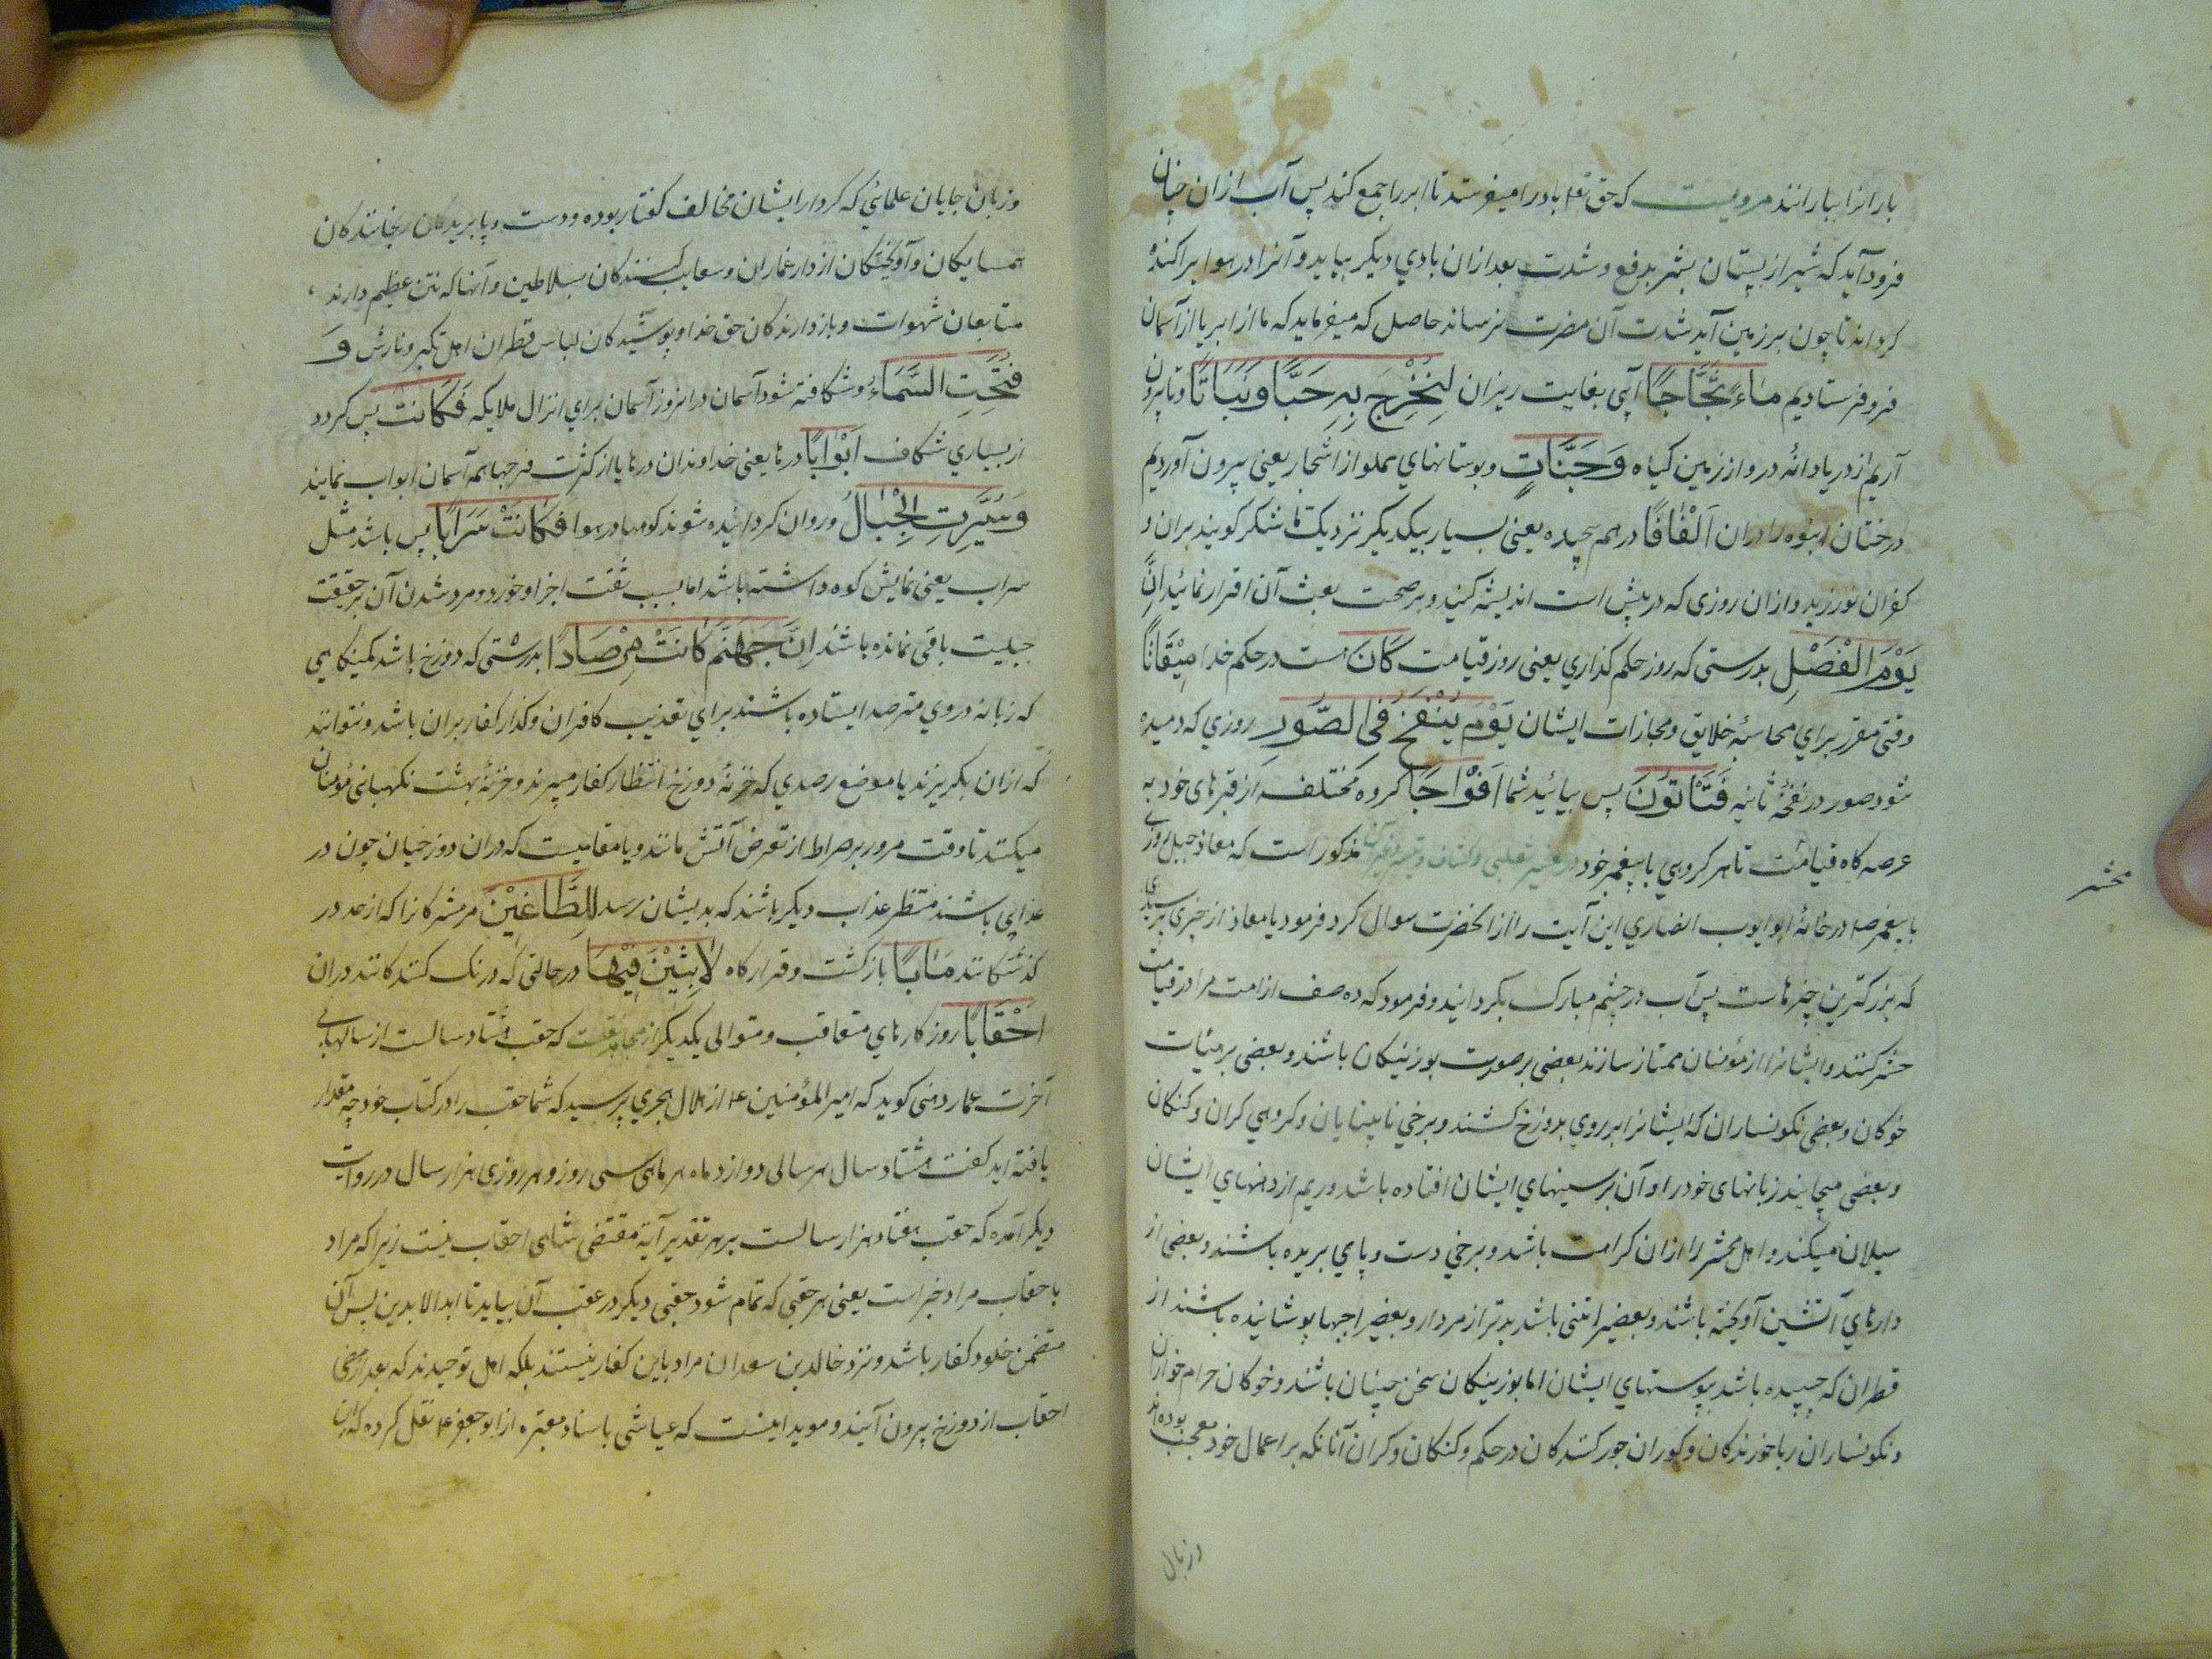 بارانرا ببارانند مرویست که حق تع‍ بادرا میفرستد تا ابر را جمع کند پس آب ازان چنان
فرود آید که شیر از پستان بشتر بدفع و شدت بعد ازان بادي دیکر بیاید و آنرا در هوا پراکنده
کرداند تا چون بر زمین آید شدت آن مضرت نرساند حاصل که میفرماید که ما از ابر یا از آسمان
فرو فرستادیم مَاءً ثَجَّاجًا آبی بغایت ریزان لِنُخْرِجَ بِهِ حَبًّا وَنَبَاتًا و تا بیرون
آریم از دریا دانهٔ در و از زمین کیاه وَجَنَّاتٍ و بوستانهاي مملو از اشجار یعنی بیرون آوردیم
درختان انبوه را دران اَلْفَافًا درهم پیچیده یعنی بسیار بیکدیکر نزدیک تا شکر کویند بران و
کفران نورزید و ازان روزی که در پیش است اندیشه کنید و بر صحت بعث آن اقرار نمائید اِنَّ
يَوْمَ الْفَصْلِ بدرستی که روز حکم کذاري یعنی روز قیامت كَانَ هست در حکم خدا مِيْقَاتًا
وقتی مقرر براي محاسبهٔ خلایق و مجازات ایشان يَوْمَ يُنْفَخُ فِي الصُّوْرِ روزي که دمیده
شود صور در نفخهٔ ثانیه فَتَأْتُوْنَ پس بیائید شما اَفْوَاجًا کروه مختلف از قبرهای خود به
عرصه کاه قیامت تا هر کروهي با پیغمبر خود در تفسیر ثعلبی و کشاف مذکور است که معاذ جبل روزی
محشر
با پیغمبر ص‍ در خانهٔ ابو ایوب انصاري این آیت را از انحضرت سوال کرد فرمود یا معاذ از چیزی پرسیدي
که بزرکترین چیزهاست پس آب در چشم مبارک بکردانید و فرمود که ده صف از امت مرا در قیامت
حشر کنند و ایشانرا از مؤمنان ممتاز سازند بعضی بر صورت بوزینکان باشند و بعضی بر هیئات
خوکان و بعضی نکونساران که ایشانرا بر روي بدوزخ کشند و برخي نابینایان و کروهي کران و کنکان
و بعضی میخایند زبانهای خود را و آن بر سینهاي ایشان افتاده باشد و ریم از دهنهاي ایشان
سیلان میکند و اهل محشر را ازان کراهت باشد و برخي دست و پاي بریده باشند و بعضی از
دارهاي آتشین آویخته باشند و بعضیرا نتنی باشد بدتر از مردار و بعضیرا جبها پوشانیده باشند از
قطران که چسپیده باشد بپوستهاي ایشان اما بوزینکان سخن چینان باشند و خوکان حرام خواران
و نکونساران ربا خورندکان و کوران جور کنندکان در حکم و کنکان و کران آنانکه بر اعمال خود معجب بوده اند
و زبان
و زبان جایان علمائی که کردار ایشان مخالف کفتار بوده و دست و پا بریدکان رنجانندکان
همسایکان و آویختکان از دار غمازان و سعایب کنندکان بسلاطین و آنها که نتن عظیم دارند
متابعان شهوات و باز دارندکان حق خدا و پوشیدکان لباس قطران اهل تکبر و نازش وَ
فُتِحَتِ السَّمَاءُ و شکافته شود آسمان در انروز آسمان براي انزال ملایکه فَكَانَتْ پس کردد
از بسیاري شکاف اَبْوَابًا درها یعنی خداوندان درها یا از کثرت فرجها همه آسمان ابواب نمایند
وَسُيِّرَتِ الْجِبَالُ و روان کردانیده شوند کوهها در هوا فَكَانَتْ سَرَابًا پس باشد مثل
سراب یعنی نمایش کوه داشته باشد اما بسبب تفتت اجزا و خورد و مرد شدن آن بر حقیقت
جبلیت باقی نمانده باشد اِنَّ جَهَنَّمَ كَانَتْ مِرْصَادًا بدرستی که دوزخ باشد کمینکاهی
که زبانه در وي مترصد ایستاده باشند براي تعذیب کافران و کذار کفار بران باشد و نتوانند
که ازان بکریزند یا موضع رصدي که خزنهٔ دوزخ انتظار کفار میبرند و خزنهٔ بهشت نکهبانی مؤمنان
میکنند تا وقت مرور بر صراط از تعرض آتش مانند و یا مقامیست که دران دوزخیان چون در
عذابی باشند منتظر عذاب دیکر باشند که بدیشان رسد لِلطَّاغِيْنَ مر مشرکانرا که از حد در
کذشتکانند مَاٰبًا بازکشت و قرار کاه لَابِثِيْنَ فِيْهَا در حالتی که درنک کنندکانند دران
اَحْقَابًا روزکارهاي متعاقب و متوالی یکدیکر از مجاهد نقلست که حقب هشتاد سالست از سالهای
آخرت عمار دهنی کوید که امیر المؤمنین ع‍ از هلال هجري پرسید که شما حقب را در کتاب خود چه مقدار
یافته اید کفت هشتاد سال هر سالی دوازده ماه هر ماهی سی روز و هر روزی هزار سال در روایت
دیکر آمده که حقب هفتاد هزار سالست بر هر تقدیر آیة مقتضی تناهی احقاب نیست زیرا که مراد
باحقاب مراد خبر است یعنی هر حقبی که تمام شود حقبی دیکر در عقب آن بیاید تا ابد الابدین پس آن
متضمن خلود کفار باشد و نزد خالد بن سعدان مراد باین کفار نیستند بلکه اهل توحیدند که بعد از مضی
احقاب از دوزخ بیرون آیند و موید اینست که عیاشی باسناد معتبره از ابو جعفر ع‍ نقل کرده که این